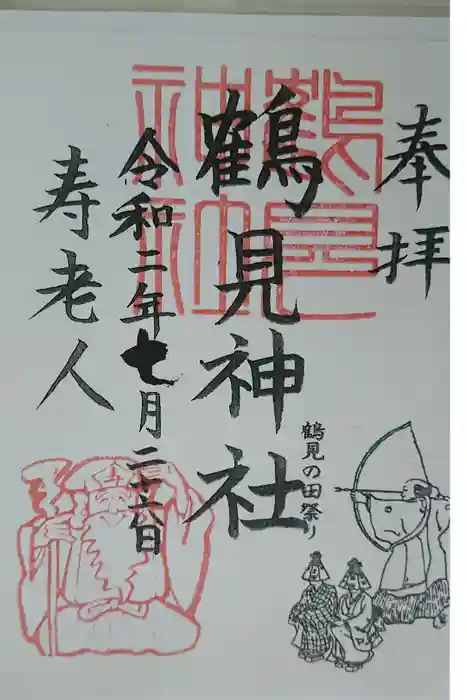 奉拝
鶴見の田祭り
鶴見神社
令和二年七月二十六日
寿老人
鶴見
神社